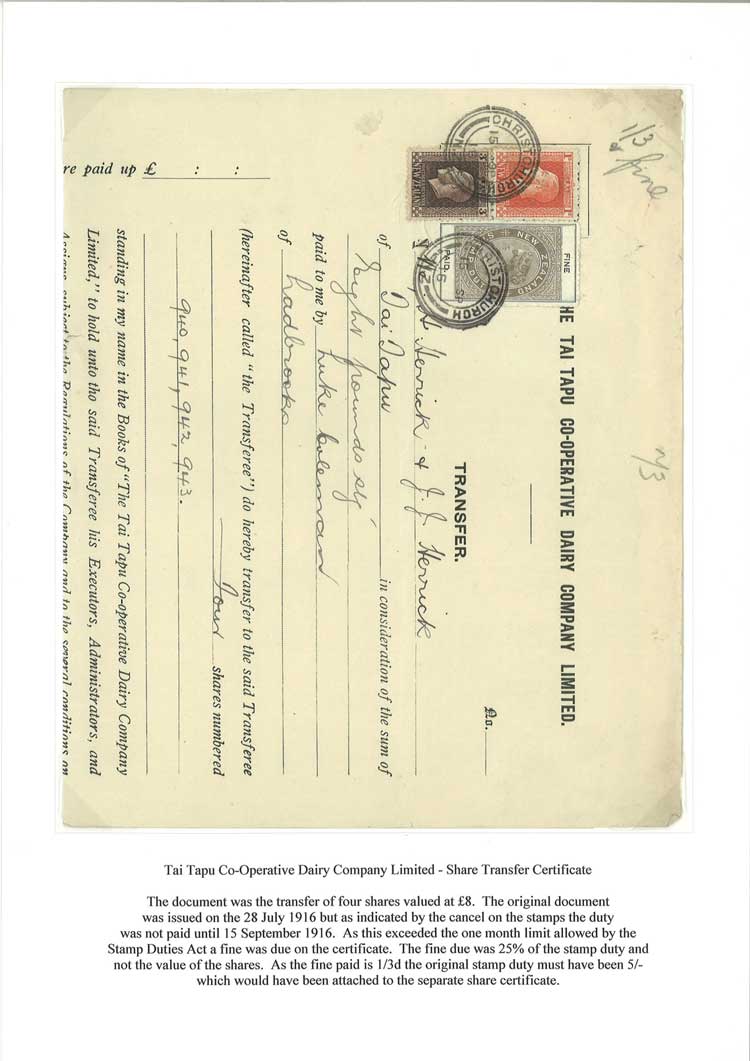 1/3
d fine
n/3
THE TAI TAPU CO-OPERATIVE DAIRY COMPANY LIMITED.
No.
TRANSFER.
Herrick & J. J. Herrick
of Tai Tapu in consideration of the sum of
Eight pounds
paid to me by Luke Coleman
of Ladbrooks
(hereinafter called "the Transferee") do hereby transfer to the said Transferee
Four shares numbered
940, 941, 942, 943.
standing in my name in the Books of "The Tai Tapu Co-operative Dairy Company
Limited," to hold unto tho said Transferee his Executors, Administrators, and
Assigns, subject to the Regulations of the Company and to the several conditions on
re paid up £ : :
FINE
NEW ZEALAND
PAID
CHRISTCHURCH
15
CHRISTCHURCH
15 SP 16
N.Z
Tai Tapu Co-Operative Dairy Company Limited - Share Transfer Certificate
The document was the transfer of four shares valued at £8. The original document
was issued on the 28 July 1916 but as indicated by the cancel on the stamps the duty
was not paid until 15 September 1916. As this exceeded the one month limit allowed by the
Stamp Duties Act a fine was due on the certificate. The fine due was 25% of the stamp duty and
not the value of the shares. As the fine paid is 1/3d the original stamp duty must have been 5/-
which would have been attached to the separate share certificate.